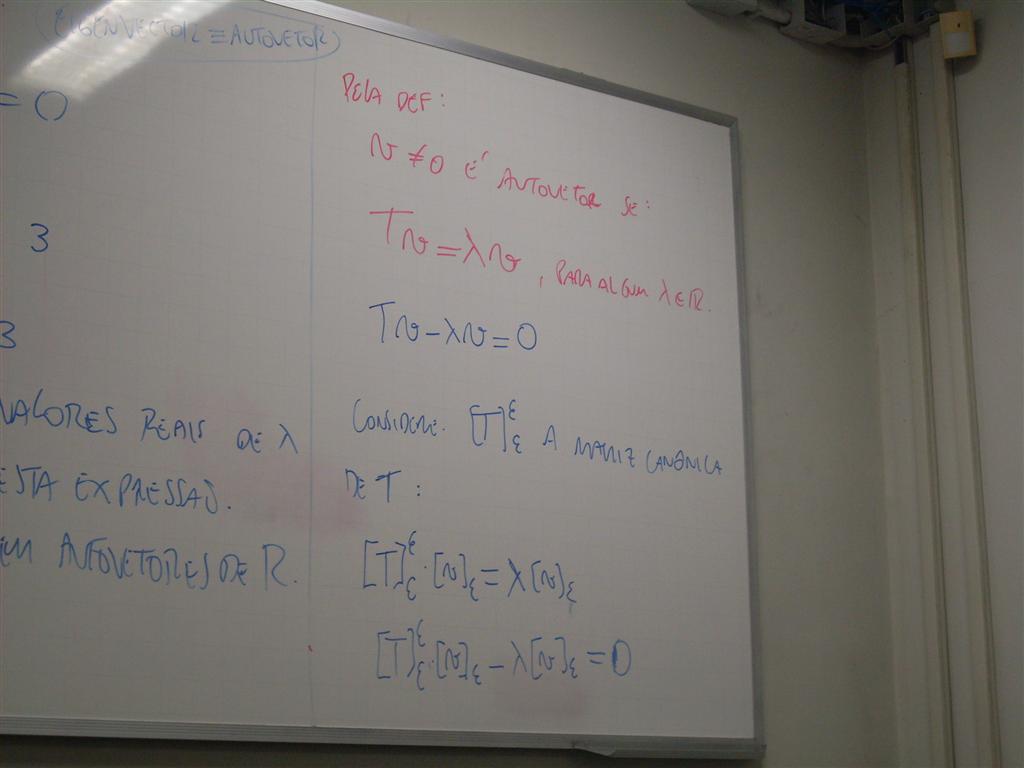 (EIGENVECTOR ≡ AUTOVETOR)
= 0
3
3
VALORES REAIS DE λ
ESTA EXPRESSÃO.
EM AUTOVETORES DE R.
PELA DEF:
v ≠ 0 É AUTOVETOR SE:
Tv = λv, PARA ALGUM λ ∈ R.
Tv - λv = 0
CONSIDERE [T]^ε_ε A MATRIZ CANÔNICA
DE T:
[T]^ε_ε · [v]_ε = λ[v]_ε
[T]^ε_ε · [v]_ε - λ[v]_ε = 0